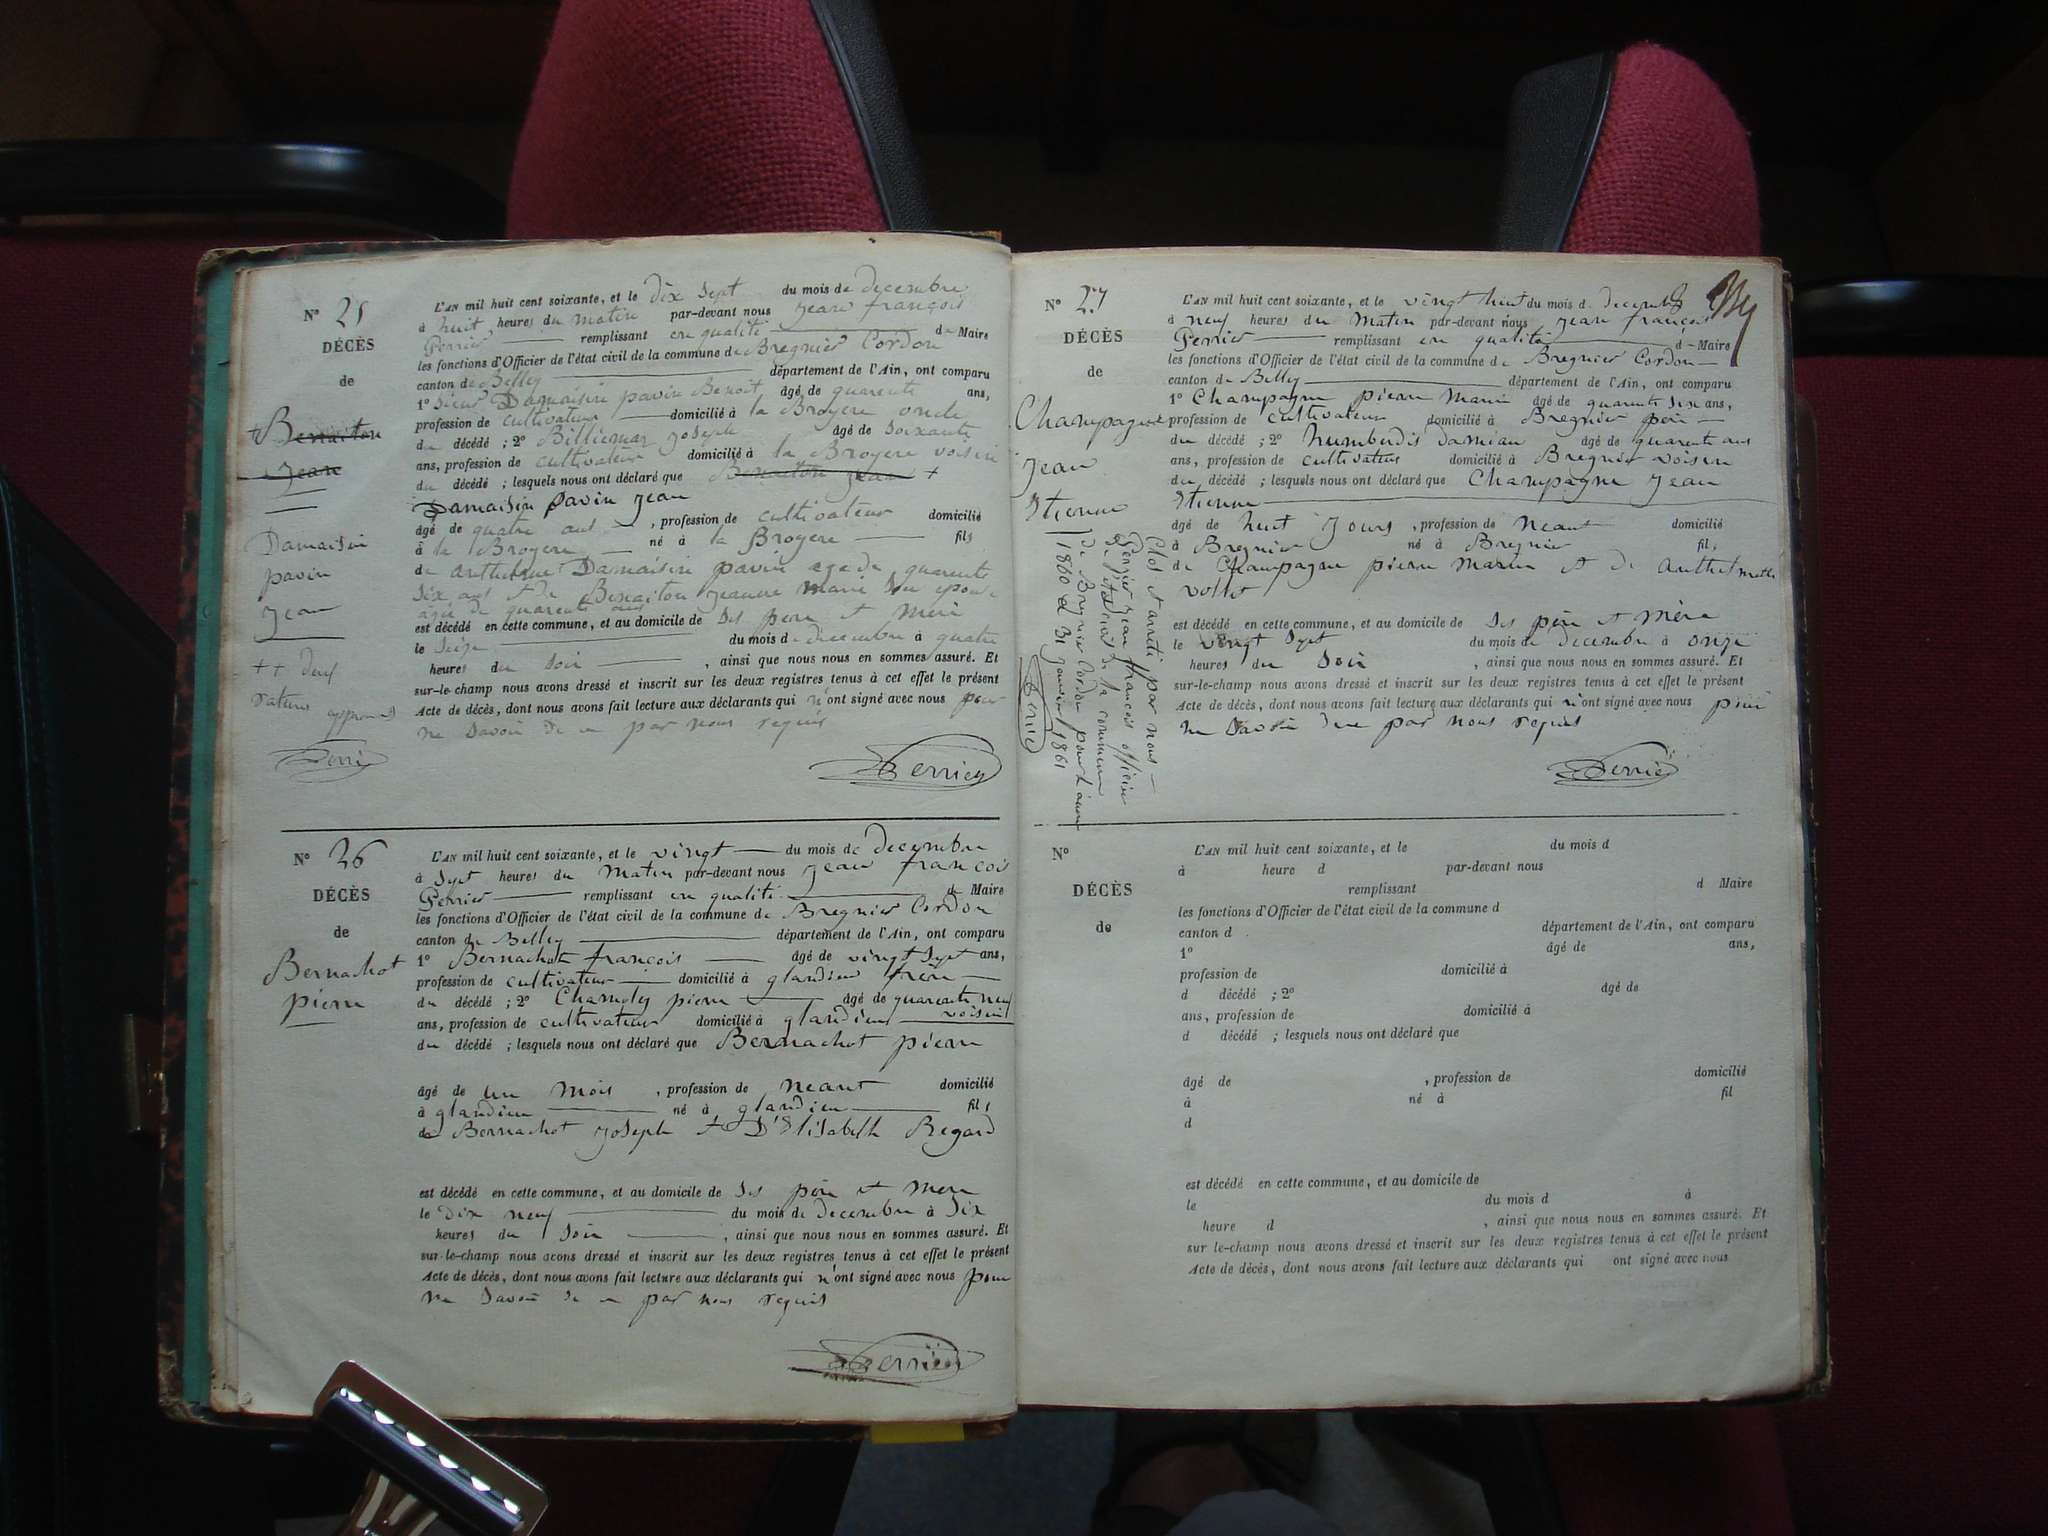 N° 25
DÉCÈS
de
+ Benaiton
Jean
Damaisin
pavin
Jean
++ deux
ratures approuvés
Perrier
L'AN mil huit cent soixante, et le dix sept du mois de decembre
à huit heures du matin par-devant nous Jean françois
Perrier remplissant en qualité de Maire
les fonctions d'Officier de l'état civil de la commune de Bregnier Cordon
canton de Belley département de l'Ain, ont comparu
1° Sieur Damaisin pavin Benoit âgé de quarente ans,
profession de cultivateur domicilié à la Broyere oncle
du décédé ; 2° Joseph âgé de soixante
ans, profession de cultivateur domicilié à la Broyere voisin
du décédé ; lesquels nous ont déclaré que Benaiton Jean +
Damaisin pavin Jean
âgé de quatre ans , profession de cultivateur domicilié
à la Broyere né à la Broyere fils
de anthelme Damaisin pavin age de quarente
six ans et de Benaiton Jeanne Marie son epouse
agée de quarente ans
est décédé en cette commune, et au domicile de ses pere et mere
le seize du mois de decembre à quatre
heures du soir , ainsi que nous nous en sommes assuré. Et
sur-le-champ nous avons dressé et inscrit sur les deux registres tenus à cet effet le présent
Acte de décès, dont nous avons fait lecture aux déclarants qui n'ont signé avec nous pour
ne savoir de ce par nous requis
Perrier
N° 26
DÉCÈS
de
Bernachot
pierre
L'AN mil huit cent soixante, et le vingt du mois de decembre
à sept heures du matin par-devant nous Jean françois
Perrier remplissant en qualité d Maire
les fonctions d'Officier de l'état civil de la commune de Bregnier Cordon
canton de Belley département de l'Ain, ont comparu
1° Bernachot françois âgé de vingt sept ans,
profession de cultivateur domicilié à glandieu frère
du décédé ; 2° pierre âgé de quarente neuf
ans, profession de cultivateur domicilié à glandieu voisin
du décédé ; lesquels nous ont déclaré que Bernachot pierre
âgé de un mois , profession de neant domicilié
à glandieu né à glandieu fils
de Bernachot Joseph et D'Elisabeth Regard
est décédé en cette commune, et au domicile de ses père et mere
le dix neuf du mois de decembre à six
heures du soir , ainsi que nous nous en sommes assuré. Et
sur-le-champ nous avons dressé et inscrit sur les deux registres tenus à cet effet le présent
Acte de décès, dont nous avons fait lecture aux déclarants qui n'ont signé avec nous pour
ne savoir de ce par nous requis
Perrier
N° 27
DÉCÈS
de
Champagne
Jean
Etienne
L'AN mil huit cent soixante, et le vingt huit du mois d decembre
à neuf heures du matin par-devant nous Jean françois
Perrier remplissant en qualité d Maire
les fonctions d'Officier de l'état civil de la commune de Bregnier Cordon
canton de Belley département de l'Ain, ont comparu
1° Champagne pierre Marie âgé de quarente six ans,
profession de cultivateur domicilié à Bregnier père
du décédé ; 2° damian âgé de quarent ans
ans, profession de cultivateur domicilié à Bregnier voisin
du décédé ; lesquels nous ont déclaré que Champagne Jean
Etienne
âgé de huit Jours , profession de neant domicilié
à Bregnier né à Bregnier fils
de Champagne pierre Marie et de anthelmette
vollet
est décédé en cette commune, et au domicile de ses père et mère
le vingt sept du mois de decembre à onze
heures du soir , ainsi que nous nous en sommes assuré. Et
sur-le-champ nous avons dressé et inscrit sur les deux registres tenus à cet effet le présent
Acte de décès, dont nous avons fait lecture aux déclarants qui n'ont signé avec nous pour
ne savoir de ce par nous requis
Perrier
Clos et arreté par nous
Perrier Jean françois officier
de l'etat civil de la commune
de Bregnier Cordon pour l'année
1860 le 31 janvier 1861
Perrier
N°
DÉCÈS
de
L'AN mil huit cent soixante, et le du mois d
à heure d par-devant nous
remplissant d Maire
les fonctions d'Officier de l'état civil de la commune d
canton d département de l'Ain, ont comparu
1° âgé de ans,
profession de domicilié à
d décédé ; 2° âgé de
ans, profession de domicilié à
d décédé ; lesquels nous ont déclaré que
âgé de , profession de domicilié
à né à fil
d
est décédé en cette commune, et au domicile de
le du mois d à
heure d , ainsi que nous nous en sommes assuré. Et
sur le-champ nous avons dressé et inscrit sur les deux registres tenus à cet effet le présent
Acte de décès, dont nous avons fait lecture aux déclarants qui ont signé avec nous